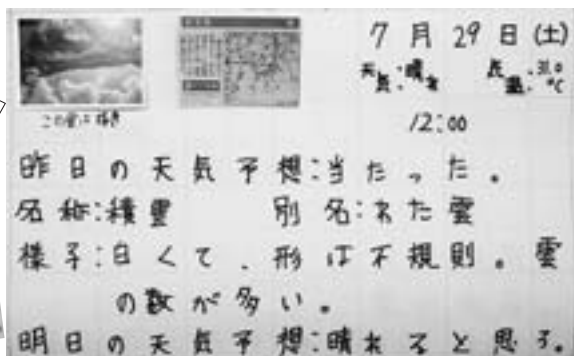 7月29日(土)
天気:晴れ 気温:31.0℃
12:00
昨日の天気予想:当たった。
名称:積雲 別名:わた雲
様子:白くて、形は不規則。雲
の数が多い。
明日の天気予想:晴れると思う。